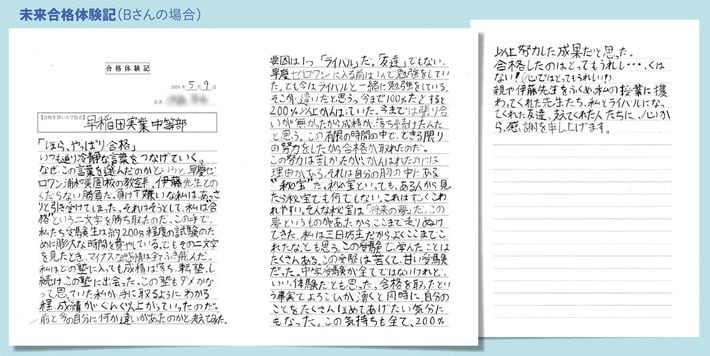 未来合格体験記(Bさんの場合)
合格体験記
2024年 5月 9日
氏名
【合格を頂いた学校名】
早稲田実業中等部
「ほら、やっぱり合格」
いつも通り冷静な言葉をつなげていく。
なぜ、この言葉を選んだのかというと、早慶ゼ
ロワン浦和美園校の教室長、伊藤先生との
くだらない勝負だ。負けず嫌いな私はあっさ
りと引き受けてしまった。それはそうとして、私は合
格という二文字を勝ち取れたのだ。この手で。
私たち受験生は約200分程度の試験のた
めに膨大な時間を費やしている。でもその二文字
を見たとき、マイナスな感情は全てふき飛んだ。
私はどの塾に入っても成績は落ち、転塾し
続け、この塾に出会った。この塾もダメかな
って思っていた私が、手に取るようにわかる
程、成績がぐんぐん上がっていったのだ。
前と今の自分に何か違いがあったのかと考えてみた。
要因は1つ「ライバル」だ。「友達」でもない。
早慶ゼロワンに入る前は1人で勉強をしてい
た。でも今はライバルと一緒に勉強をしている。
そこが違いだと思う。今まで100%だとすると
200%以上がんばっていた。今までは張り合
いが無かったから成績が落ち続けたんだ
と思う。この有限の時間の中で、できる限り
の努力をしたから合格が取れたのだ。
この努力は苦しかったが、がんばれたのには
理由がある。それは自分の胸の中にある
"秘宝"だ。秘宝といっても、ある人から見
たら秘宝でも何でもない。これはすごくこわ
れやすい。そんな秘宝は「将来の夢」だ。この
夢というものがあったからここまで走りぬけ
てきた。私は三日坊主だからよくここまでこ
れたな、とも思う。この受験で、学んだことは
たくさんある。この受験は苦くて、甘い受験
だった。中学受験が全てではないけれど、
いい体験だとも思った。合格を取ったという
事実でよろこびが湧くと同時に、自分の
ことをたくさんほめてあげたい気分に
もなった。この気持ちも全て、200%
以上努力した成果だと思った。
合格したのはとってもうれし…、くは
ない！(心ではとってもうれしい！)
親や伊藤先生をふくめ、私の授業に携
わってくれた先生たち、私とライバルになっ
てくれた友達、支えてくれた人たちに、心か
ら感謝を申し上げます。